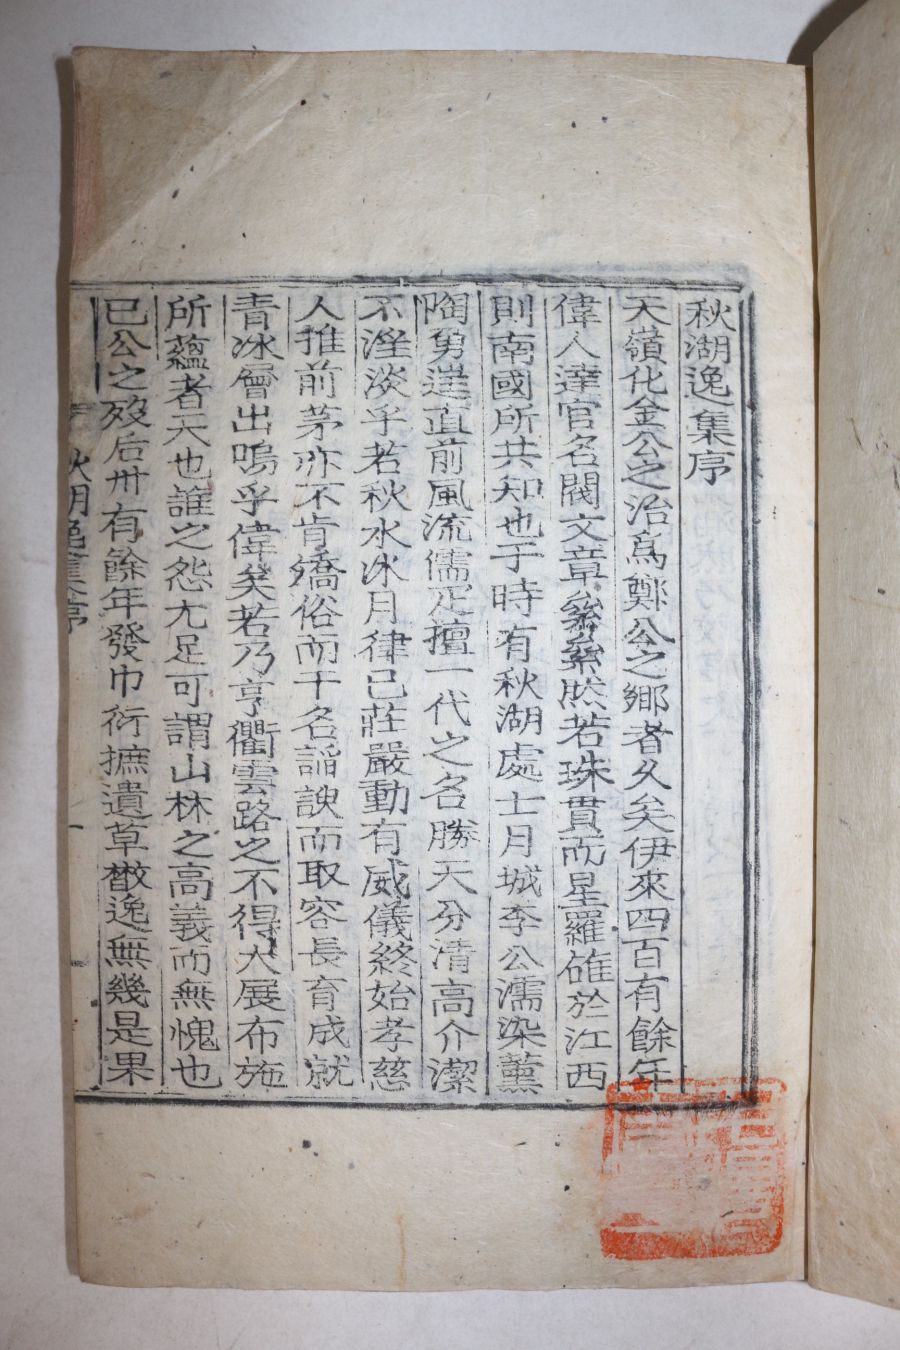 秋湖逸集序
天嶺化金公之治爲鄭公之鄉者久矣伊來四百有餘年
偉人達官名閥文章纍纍然若珠貫而星羅碓於江西
則南國所共知也于時有秋湖處士月城李公濡染薰
陶勇達直前風流儒疋擅一代之名勝天分清高介潔
不溼淡乎若秋水冰月律己莊嚴動有威儀終始孝慈
人推前茅亦不肯矯俗而干名謟諛而取容長育成就
青冰層出嗚乎偉矣若乃亨衢雲路之不得大展布施
所蘊者天也誰之怨尤足可謂山林之高義而無愧也
已公之歿后卅有餘年發巾衍摭遺草散逸無幾是果
秋湖逸集序
一